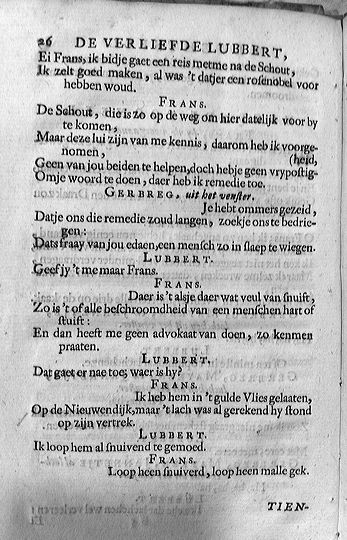 26 DE VERLIEFDE LUBBERT,
Ei Frans, ik bidje gaet een reis metme na de Schout,
Ik zelt goed maken, al was 't datjer een rosenobel voor
hebben woud.
FRANS.
De Schout, die is zo op de weg om hier datelijk voor by
te komen,
Maar deze lui zijn van me kennis, daarom heb ik voorge-
nomen, (heid,
Geen van jou beiden te helpen, doch hebje geen vrypostig-
Omje woord te doen, daer heb ik remedie toe.
GERBREG, uit het venster.
Je hebt ommers gezeid,
Datje ons die remedie zoud langen, zoekje ons te bedrie-
gen:
Dats fraay van jou edaen, een mensch zo in slaep te wiegen.
LUBBERT.
Geef jy 't me maar Frans.
FRANS.
Daer is 't alsje daer wat veul van snuift,
Zo is 't of alle beschroomdheid van een menschen hart of
stuift:
En dan heeft me geen advokaat van doen, zo kenmen
praaten.
LUBBERT.
Dat gaet er nae toe, waer is hy?
FRANS.
Ik heb hem in 't gulde Vlies gelaaten,
Op de Nieuwendijk, maar 't lach was al gerekend hy stond
op zijn vertrek.
LUBBERT.
Ik loop hem al snuivend te gemoed.
FRANS.
Loop heen snuiverd, loop heen malle gek.
TIEN-